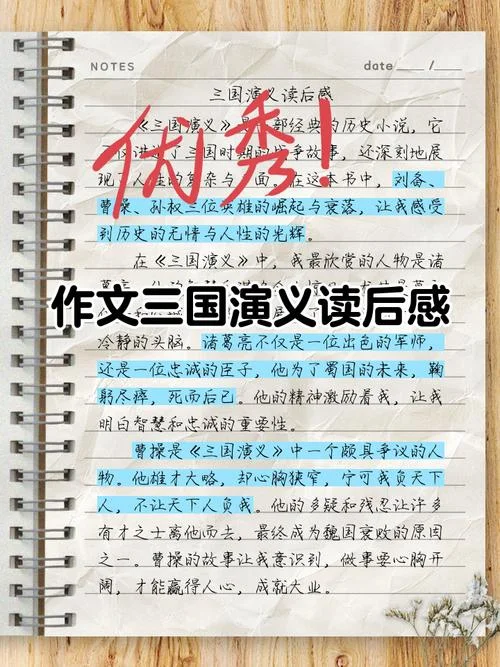 NOTES
date ___ / ___
三国演义读后感
《三国演义》是 部经典的历史小说，它
三国时期的 争故事，还深刻地展
现了人性的复杂与 面。在这本书中，刘备、
曹操、孙权三位英雄的崛起与衰落，让我感受
到历史的无情与人性的光辉。
优秀！
在《三国演义》中，我最欣赏的人物是诸
作文三国演义读后感
冷静的头脑。诸葛亮不仅是一位出色的军师，
还是一位忠诚的臣子，他为了蜀国的未来，鞠
躬尽瘁，死而后已。他的精神激励着我，让我
明白智慧和忠诚的重要性。
曹操是《三国演义》中一个颇具争议的人
物。他雄才大略，却心胸狭窄，宁可我负天下
人，不让天下人负我。他的多疑和残忍让许多
有才之士离他而去，最终成为魏国衰败的原因
之一。曹操的故事让我意识到，做事要心胸开
阔，才能赢得人心，成就大业。